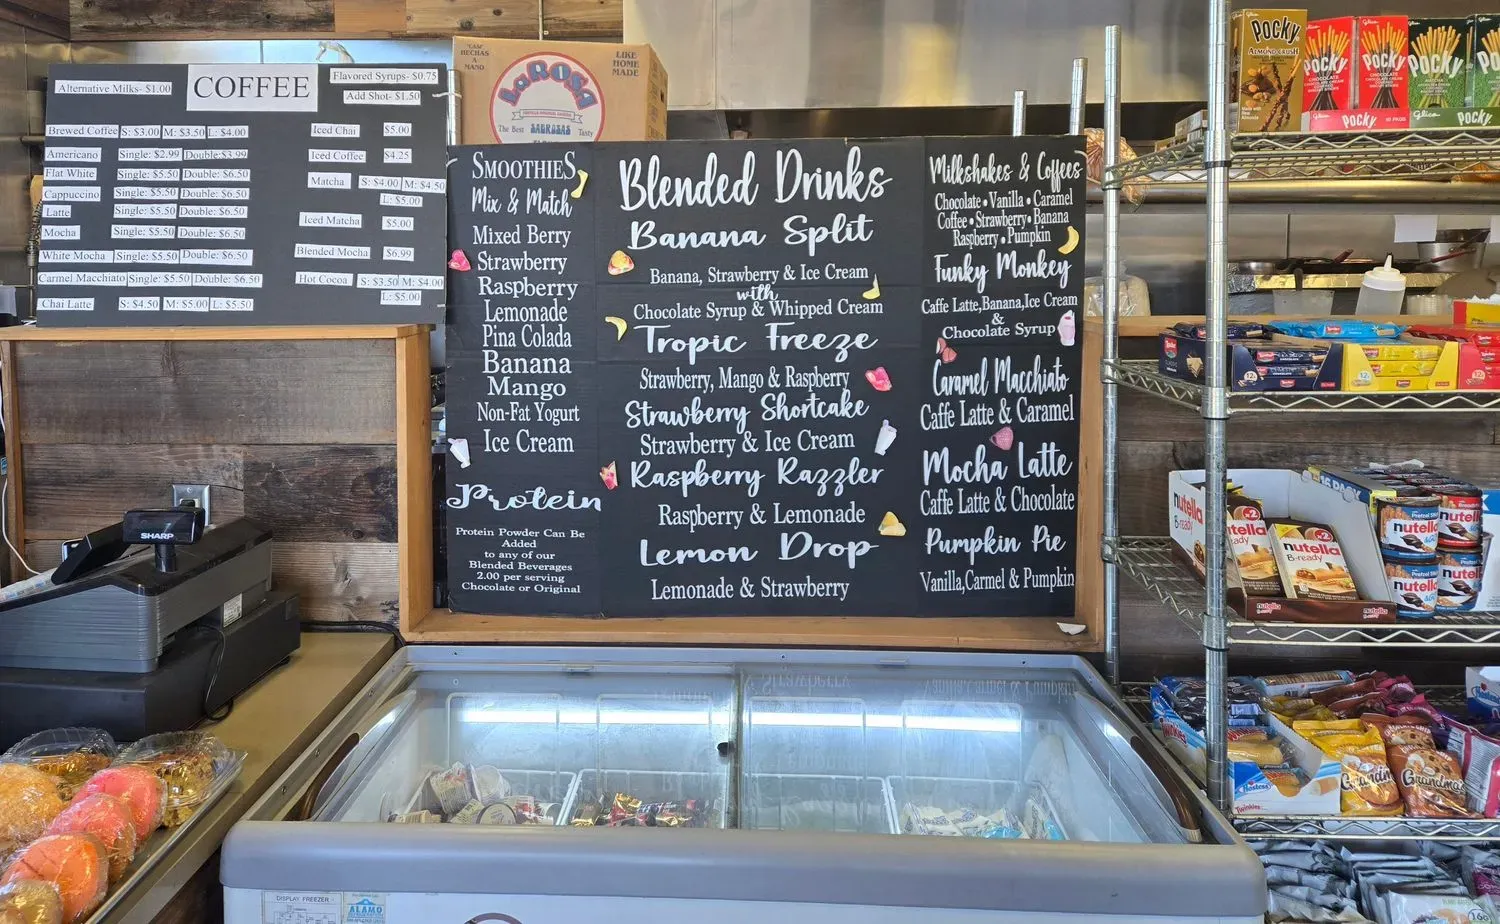 COFFEE
Alternative Milks- $1.00
Flavored Syrups- $0.75
Add Shot- $1.50
Brewed Coffee S: $3.00 M: $3.50 L: $4.00
Americano Single: $2.99 Double: $3.99
Flat White Single: $5.50 Double: $6.50
Cappuccino Single: $5.50 Double: $6.50
Latte Single: $5.50 Double: $6.50
Mocha Single: $5.50 Double: $6.50
White Mocha Single: $5.50 Double: $6.50
Carmel Macchiato Single: $5.50 Double: $6.50
Chai Latte S: $4.50 M: $5.00 L: $5.50
Iced Chai $5.00
Iced Coffee $4.25
Matcha S: $4.00 M: $4.50
L: $5.00
Iced Matcha $5.00
Blended Mocha $6.99
Hot Cocoa S: $3.50 M: $4.00
L: $5.00
"CASI
HECHAS
A
MANO
LaROSA
LIKE
HOME
MADE
The Best SABROSAS Tasty
SMOOTHIES
Mix & Match
Mixed Berry
Strawberry
Raspberry
Lemonade
Pina Colada
Banana
Mango
Non-Fat Yogurt
Ice Cream
Protein
Protein Powder Can Be
Added
to any of our
Blended Beverages
2.00 per serving
Chocolate or Original
Blended Drinks
Banana Split
Banana, Strawberry & Ice Cream
with
Chocolate Syrup & Whipped Cream
Tropic Freeze
Strawberry, Mango & Raspberry
Strawberry Shortcake
Strawberry & Ice Cream
Raspberry Razzler
Raspberry & Lemonade
Lemon Drop
Lemonade & Strawberry
Milkshakes & Coffees
Chocolate • Vanilla • Caramel
Coffee • Strawberry • Banana
Raspberry • Pumpkin
Funky Monkey
Caffe Latte,Banana,Ice Cream
&
Chocolate Syrup
Caramel Macchiato
Caffe Latte & Caramel
Mocha Latte
Caffe Latte & Chocolate
Pumpkin Pie
Vanilla,Carmel & Pumpkin
SHARP
DISPLAY FREEZER
ALAMO
Glico
POCKY
ALMOND CRUSH
POCKY
POCKY
POCKY
POCKY
POCKY
Glico
POCKY
nutella
B-ready
nutella
nutella
B-ready
nutella
nutella
nutella
nutella
nutella
16 PACK
Hostess
Twinkies
Grandma's
Grandma's